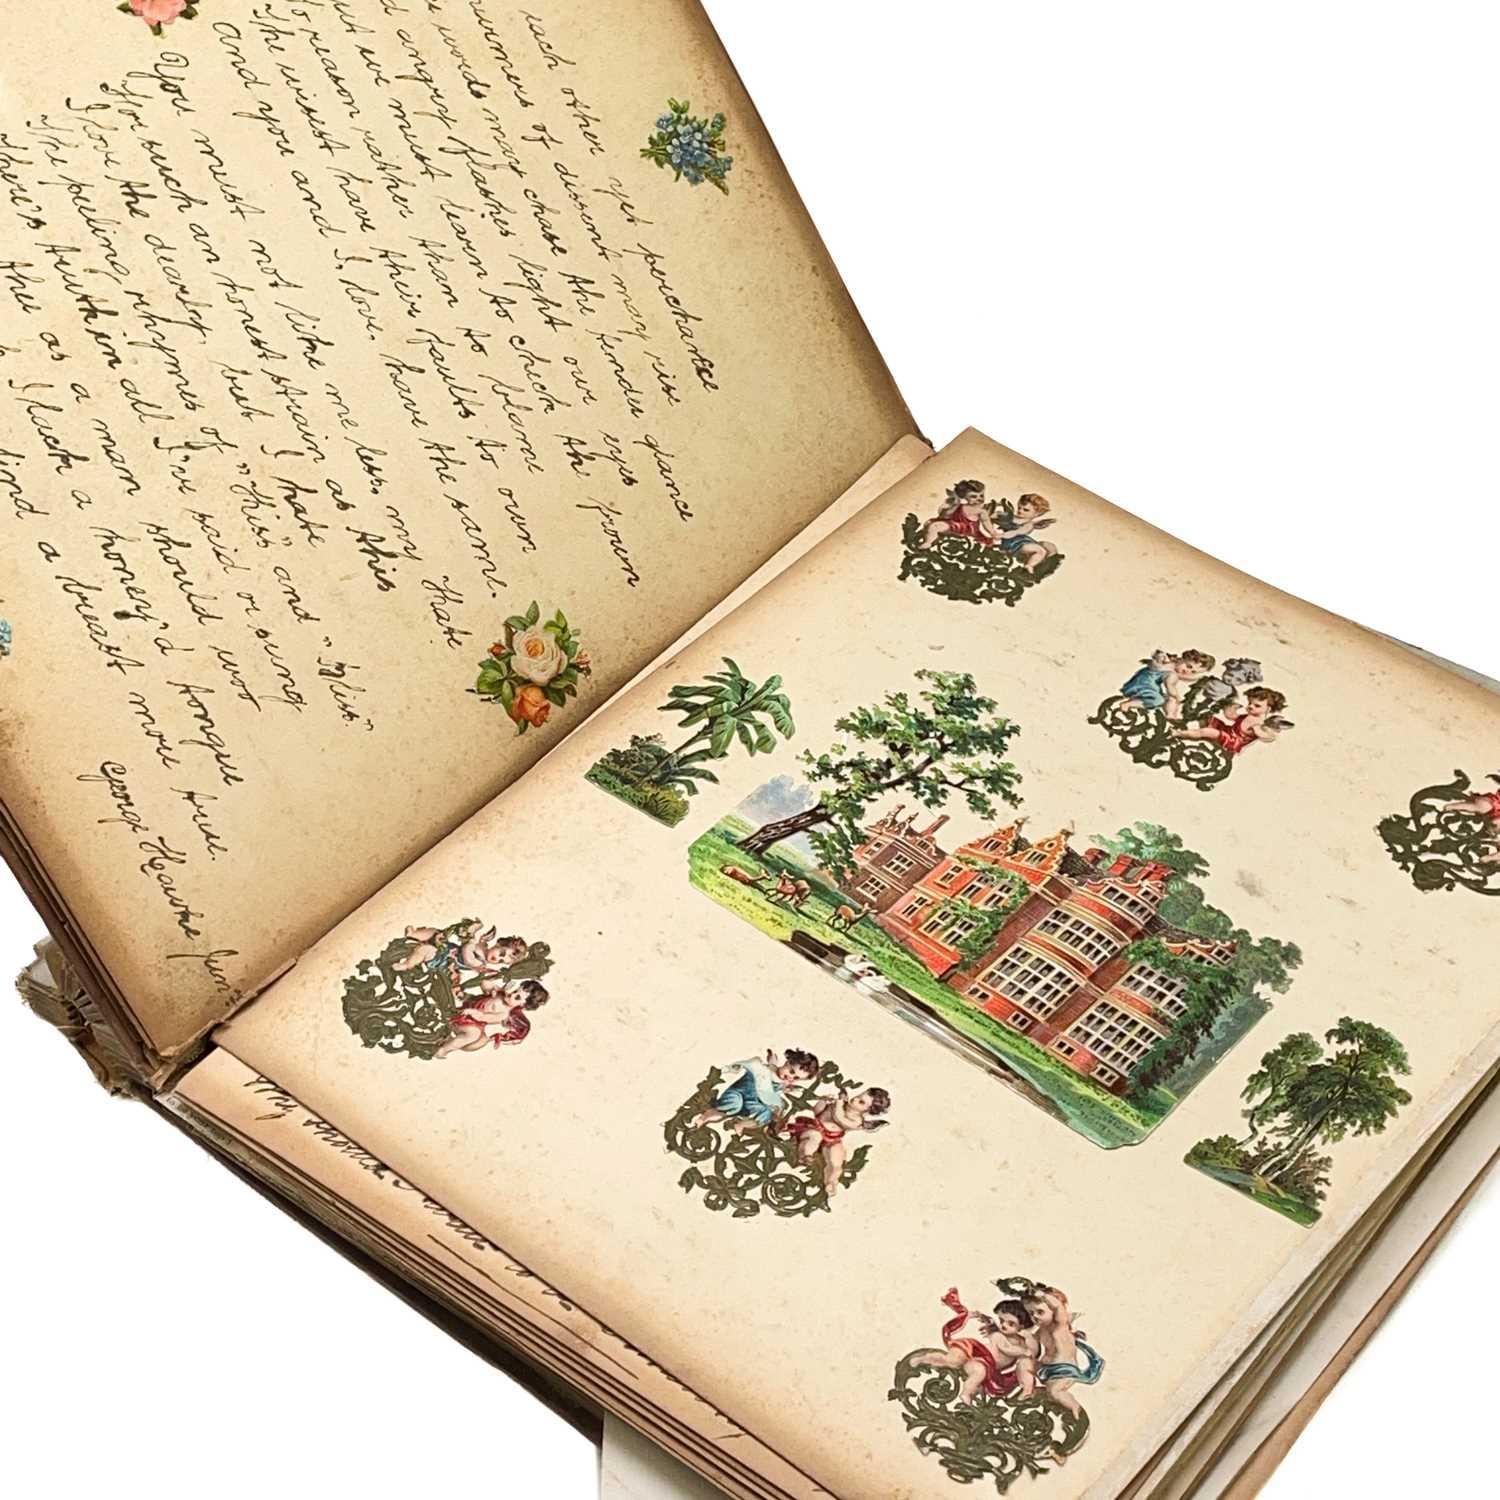 each other yet perchance
of dissent may rise
words may chase the tender glance
angry flashes light our eyes
we must learn to check the frown
To reason rather than to blame
The wisest have their faults to own
and you and I, love, have the same.
You must not like me less, my Kate
For such an honest strain as this
I love the dearly, but I hate
The puling rhymes of "Kiss" and "Bliss."
There's truth in all I've said or sung
thee as a man should woo
I lack a honey'd tongue
a breast more true.
George Hawke June
My